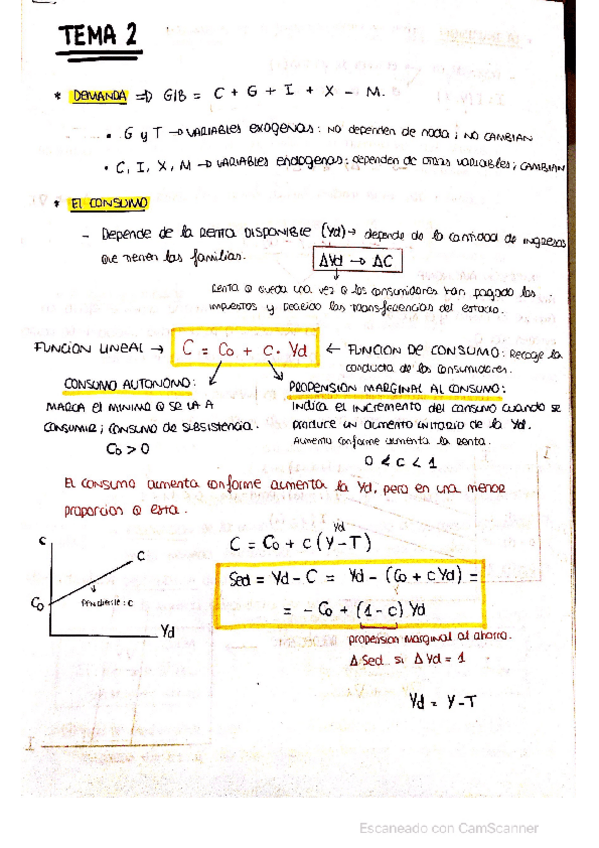 TEMA 2
* DEMANDA ⇒ GIB = C + G + I + X - M.
• G y T → VARIABLES EXOGENAS: NO dependen de nada; NO CAMBIAN
• C, I, X, M → VARIABLES ENDOGENAS: dependen de otras variables; CAMBIAN
* El CONSUMO
- Depende de la RENTA DISPONIBLE (Yd) → depende de la cantidad de ingresos
que tienen las familias.
ΔYd → ΔC
Renta q queda una vez q los consumidores han pagado los
impuestos y recibido las transferencias del estado.
FUNCION LINEAL → C = Co + c · Yd ← FUNCION DE CONSUMO: Recoge la
conducta de los consumidores.
CONSUMO AUTONOMO: PROPENSION MARGINAL AL CONSUMO:
MARCA el MINIMO q SE VA A Indica el INCREMENTO del consumo cuando se
CONSUMIR; CONSUMO DE SUBSISTENCIA. produce un aumento unitario de la Yd.
Co > 0 Aumenta conforme aumenta la renta.
0 < c < 1
El consumo aumenta conforme aumenta la Yd, pero en una menor
proporcion q esta.
Yd
C = Co + c (Y - T)
C
C
Co
Pendiente: c
Yd
Sed = Yd - C = Yd - (Co + c Yd) =
= - Co + (1 - c) Yd
propension marginal al ahorro.
Δ Sed si Δ Yd = 1
Yd = Y - T
Escaneado con CamScanner